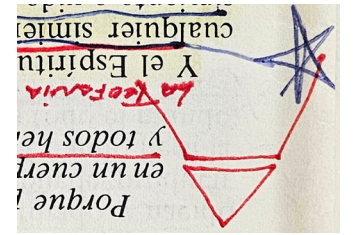 Porque
en un cuerp
y todos he
La Teofanía
Y el Espíritu
cualquier simien